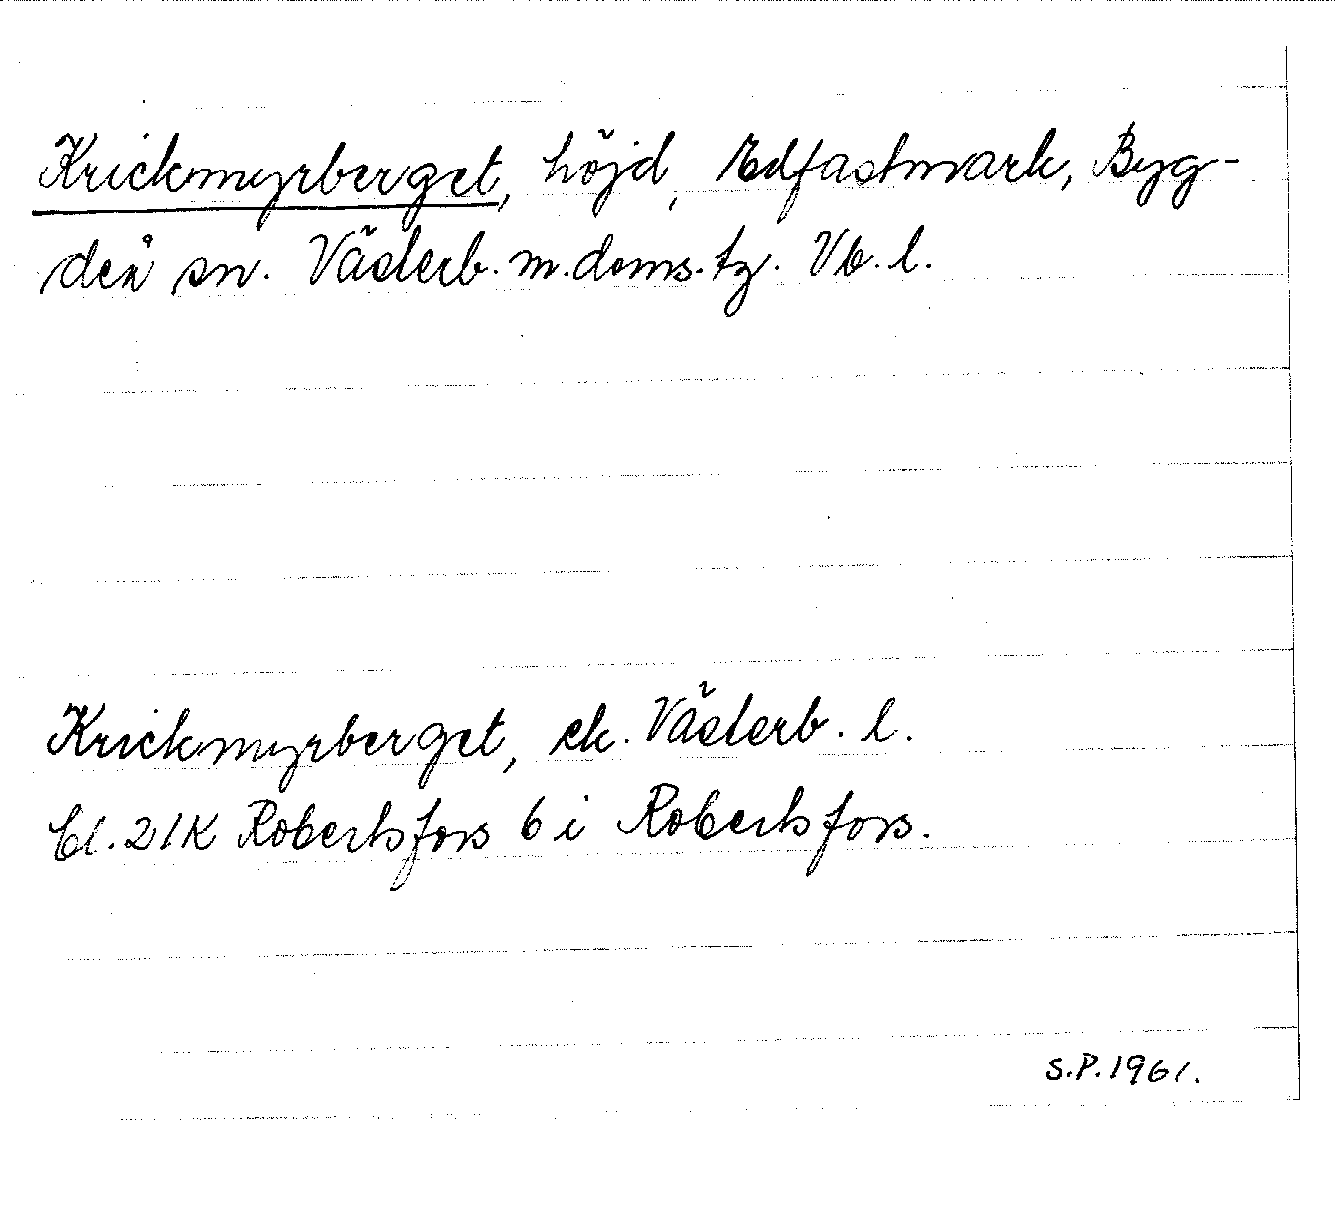 Krickmyrberget, höjd, Edfastmark, Byg-
deå sn. Västerb. m. doms. tg. Vb. l.
Krickmyrberget, ek. Västerb. l.
bl. 21K Robertsfors 6 i Robertsfors.
S.P. 1961.